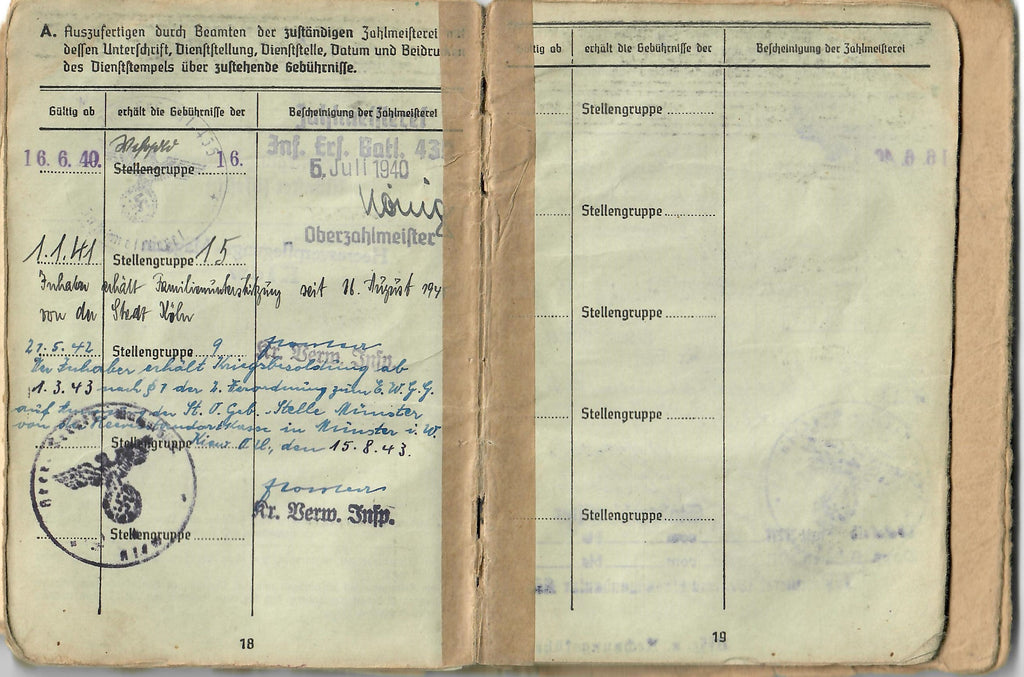 A. Auszufertigen durch Beamten der zuständigen Zahlmeisterei
dessen Unterschrift, Dienststellung, Dienststelle, Datum und Beidru
des Dienststempels über zustehende Gebührnisse.
Gültig ab erhält die Gebührnisse der Bescheinigung der Zahlmeisterei
Zahlmeisterei
16. 6. 40. 16. Inf. Ers. Batl. 43
Stellengruppe 5. Juli 1940
König
Oberzahlmeister
1.1.41 Stellengruppe 15
Inhaber erhält Familienunterstützung seit 16. August 194
von der Stadt Köln
21.5.42 Stellengruppe 9
Kr. Verw. Insp.
Der Inhaber erhält Kriegsbesoldung ab
1.3.43 nach § 1 der 2. Verordnung zum E.W.G.G.
auf der St. O. Geb. Stelle Münster
von der in Münster i. W.
Stellengruppe den 15.8.43.
Kr. Verw. Insp.
Stellengruppe
18
tig ab erhält die Gebührnisse der Bescheinigung der Zahlmeisterei
Stellengruppe
Stellengruppe
Stellengruppe
Stellengruppe
Stellengruppe
19